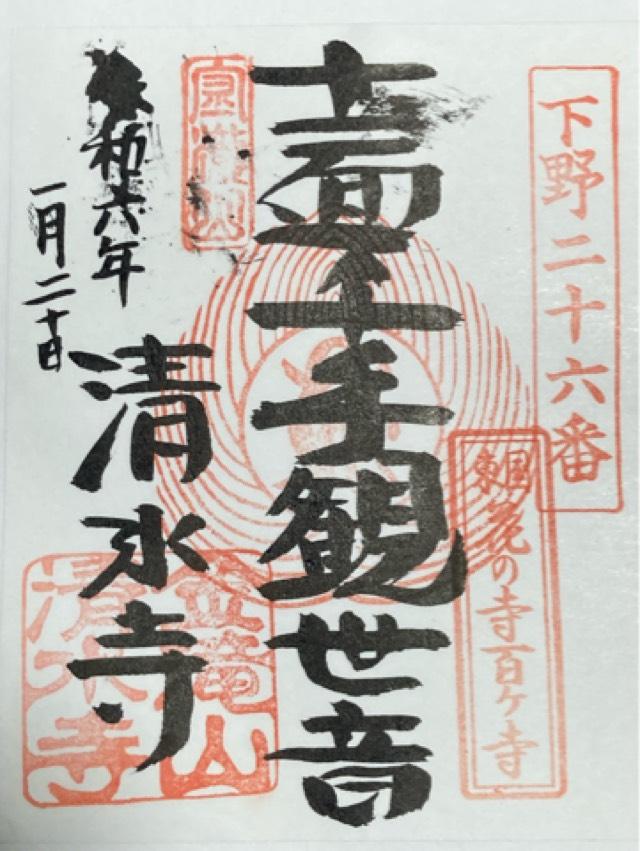 下野二十六番
東国花の寺百ケ寺
十一面千手観世音
清水寺
令和六年
一月二十日
金竜山
清水寺